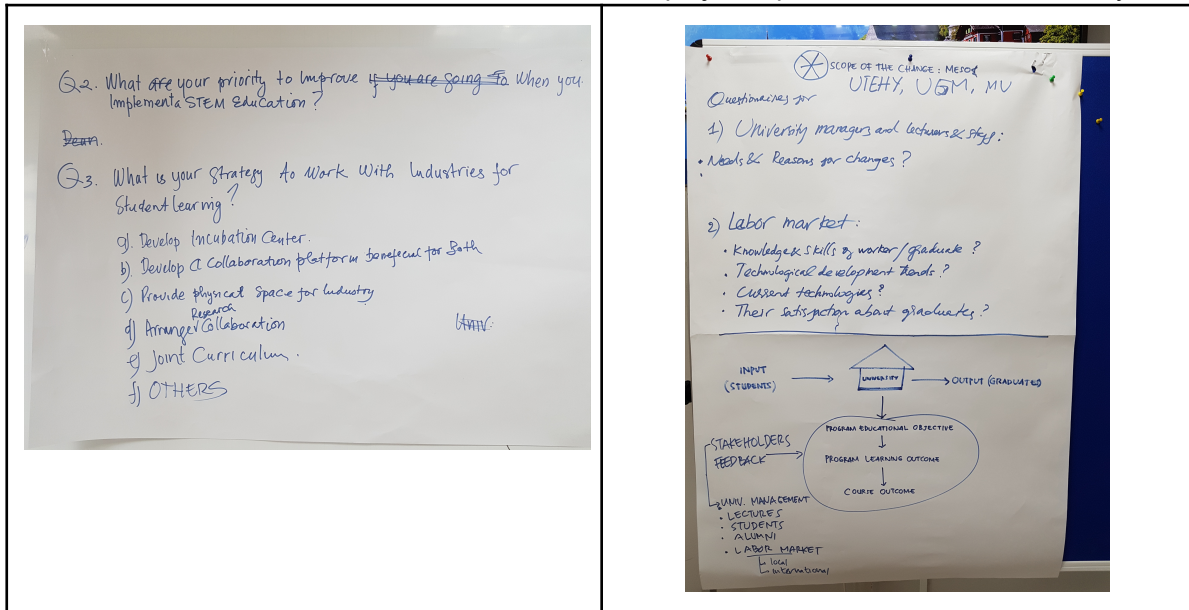 Q2. What are your priority to Improve if you are going to when you
Implement a STEM Education?
Dean.
Q3. What is your Strategy to Work With Industries for
Student learning?
a). Develop Incubation Center.
b). Develop a Collaboration platform benefecial for Both
c) Provide physical Space for Industry
d) Arrange Research Collaboration
Univ.
e) Joint Curriculum.
f) OTHERS
SCOPE OF THE CHANGE: MESO
UTEHY, UGM, MU
Questionaires for
1) University managers and lecturers & staff:
• Needs & Reasons for changes?
2) Labor market:
• Knowledge & skills of worker/graduate?
• Technological development trends?
• Current technologies?
• Their satisfaction about graduates?
INPUT
(STUDENTS)
UNIVERSITY
OUTPUT (GRADUATED)
PROGRAM EDUCATIONAL OBJECTIVE
STAKEHOLDERS
FEEDBACK
PROGRAM LEARNING OUTCOME
COURSE OUTCOME
UNIV. MANAGEMENT
• LECTURES
• STUDENTS
• ALUMNI
• LABOR MARKET
local
international